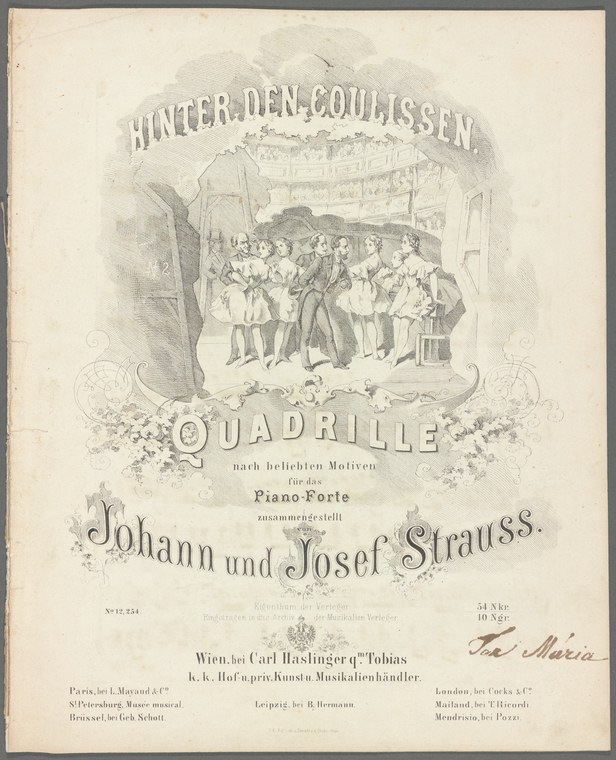 HINTER DEN COULISSEN.
No 2
QUADRILLE
nach beliebten Motiven
für das
Piano-Forte
zusammengestellt
von
Johann und Josef Strauss.
No 12,254.
Eigenthum der Verleger
Eingetragen in das Archiv der Musikalien Verleger.
54 Nkr.
10 Ngr.
Wien, bei Carl Haslinger qm Tobias
k. k. Hof- u. priv. Kunst u. Musikalienhändler.
Paris, bei L. Mayaud & Co
St Petersburg, Musée musical.
Brüssel, bei Geb. Schott.
Leipzig, bei B. Hermann.
London, bei Cocks & Co
Mailand, bei T. Ricordi
Mendrisio, bei Pozzi.
Mária